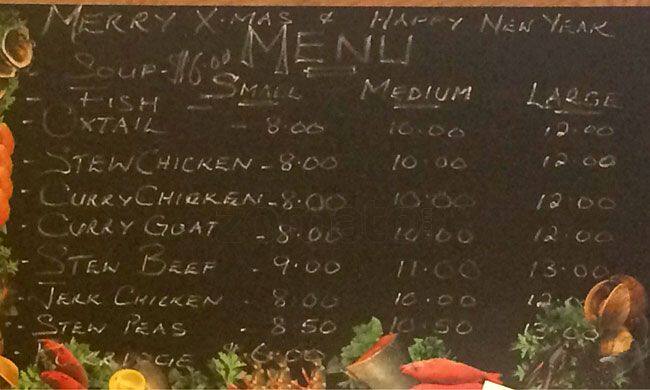 MERRY X-MAS & HAPPY NEW YEAR
MENU
- SOUP-$6.00
SMALL MEDIUM LARGE
- FISH
- OXTAIL - 8.00 10.00 12.00
- STEW CHICKEN - 8.00 10.00 12.00
- CURRY CHICKEN - 8.00 10.00 12.00
- CURRY GOAT - 8.00 10.00 12.00
- STEW BEEF - 9.00 11.00 13.00
- JERK CHICKEN - 8.00 10.00 12.
- STEW PEAS - 8.50 10.50 13.00
- PORRIDGE $6.00